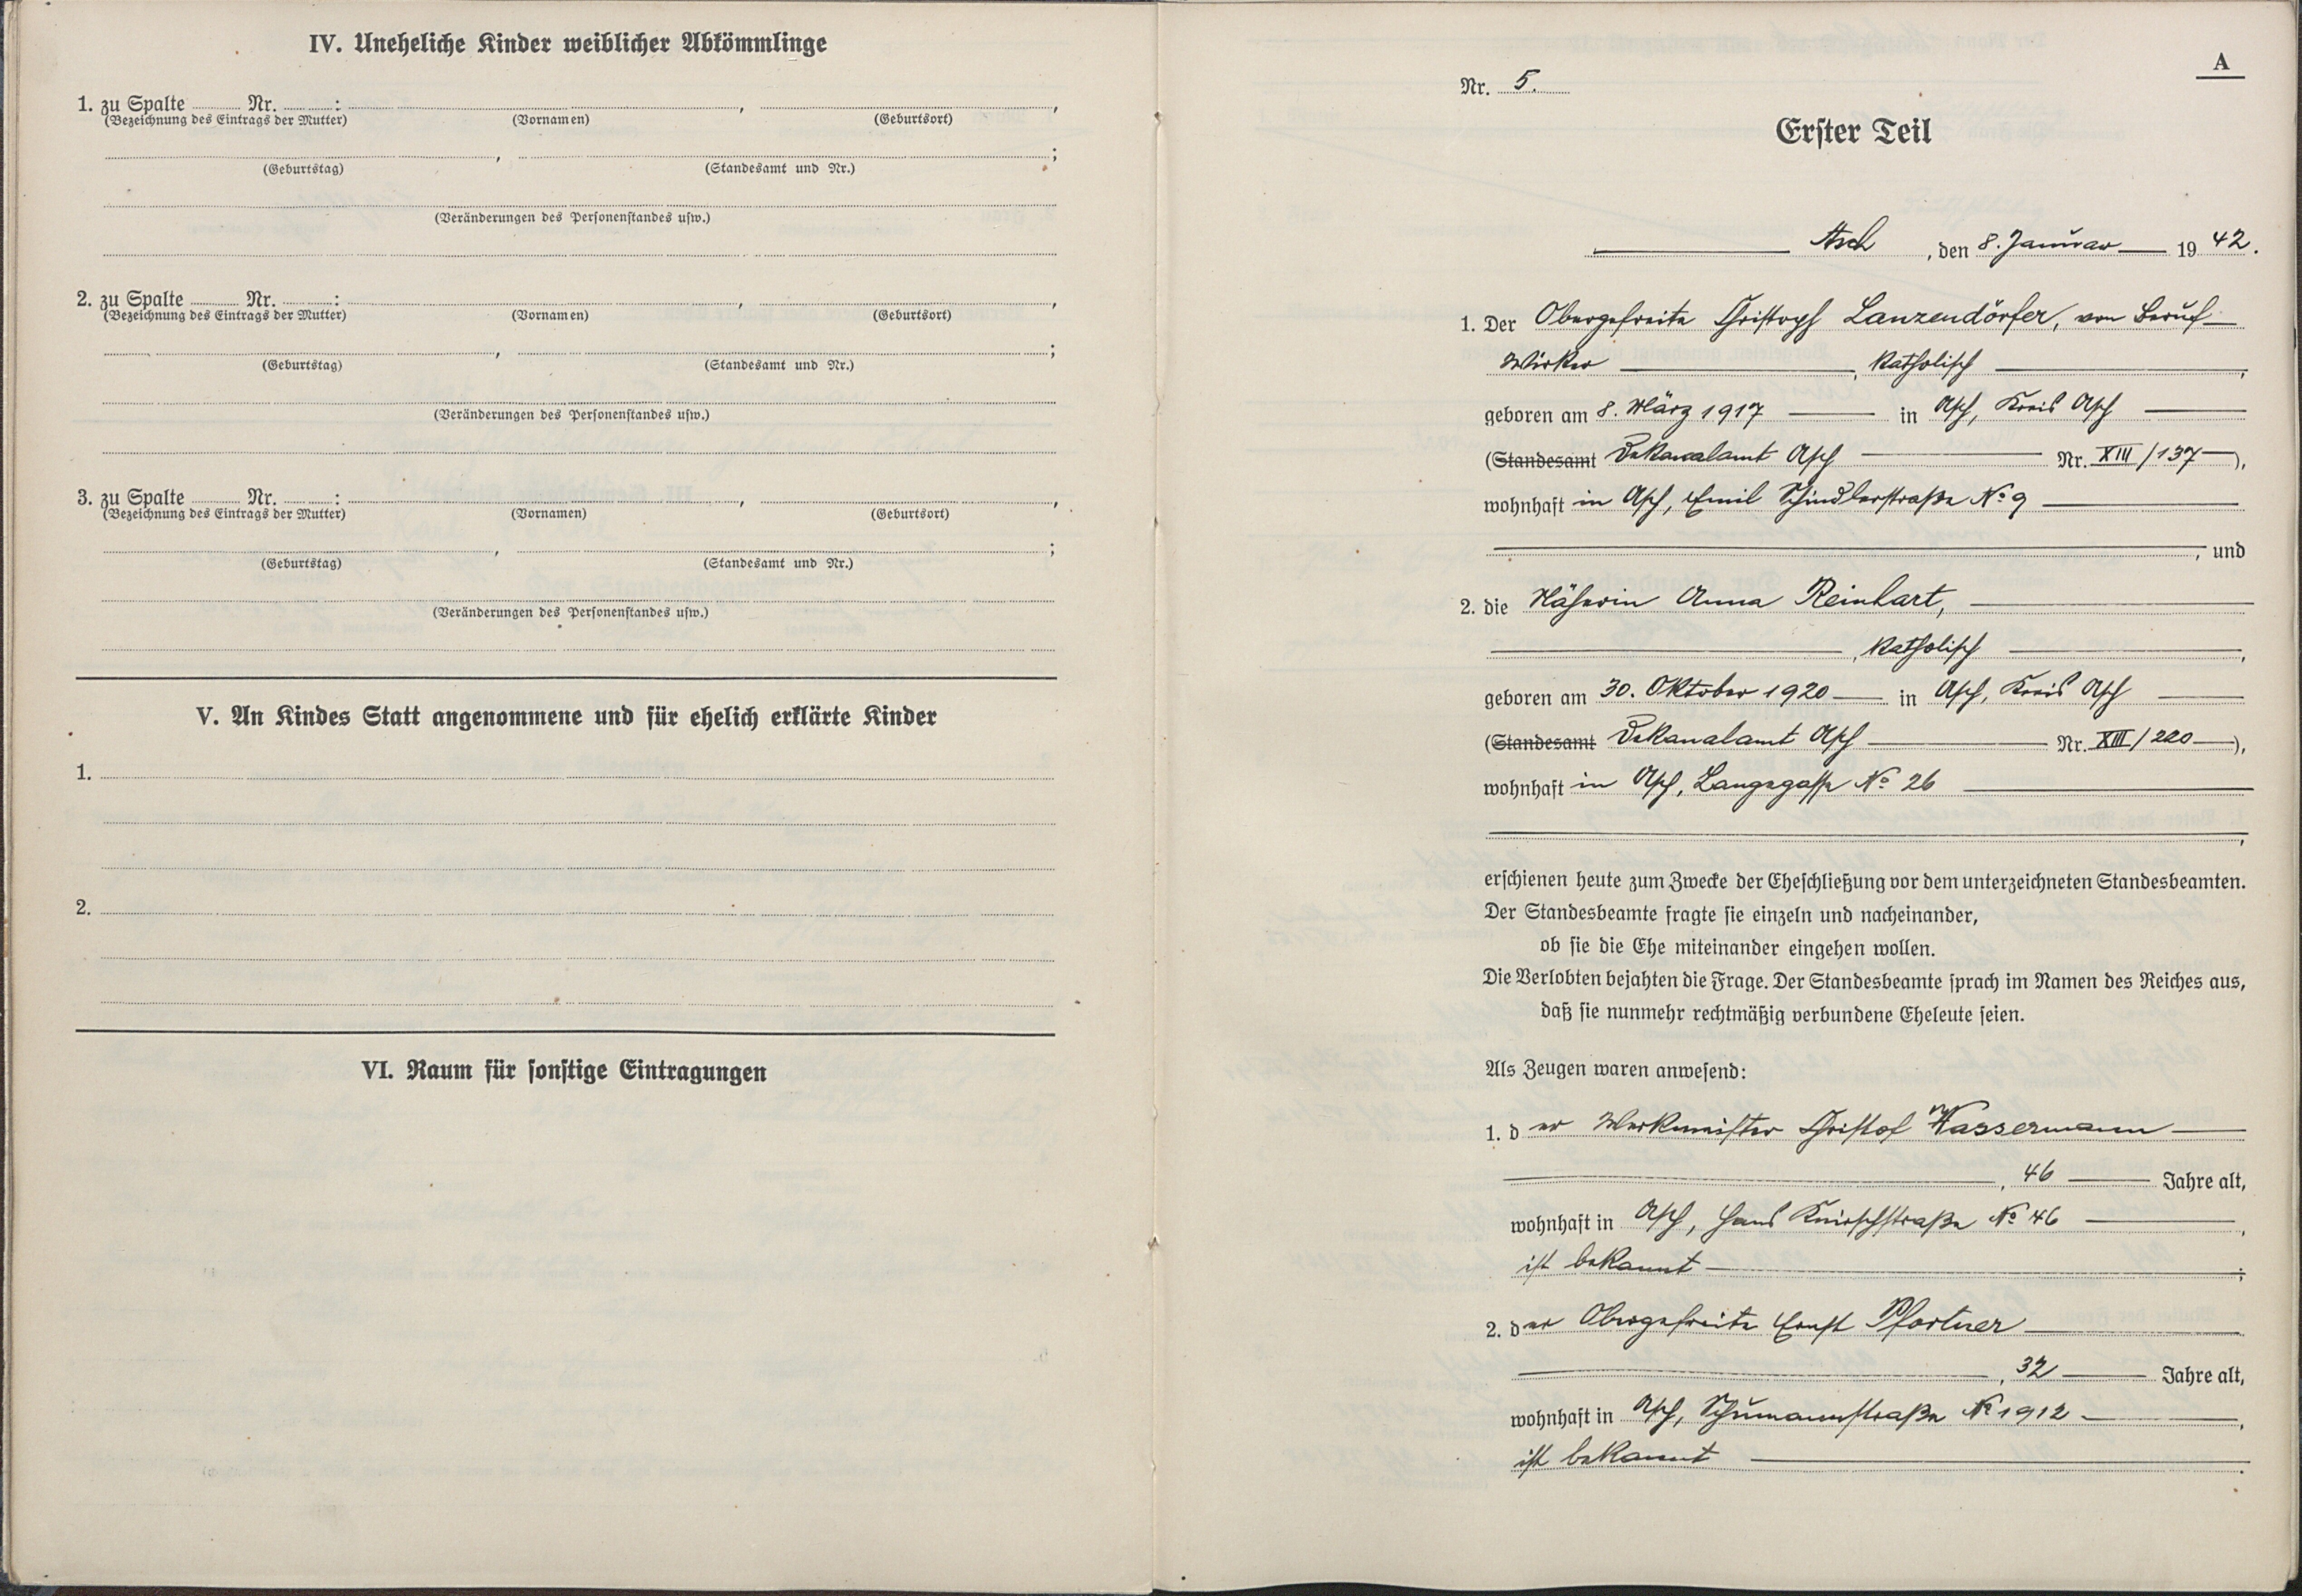 IV. Uneheliche Kinder weiblicher Abkömmlinge
1. zu Spalte Nr. : , ,
(Bezeichnung des Eintrags der Mutter) (Vornamen) (Geburtsort)
, ;
(Geburtstag) (Standesamt und Nr.)
(Veränderungen des Personenstandes usw.)
2. zu Spalte Nr. : , ,
(Bezeichnung des Eintrags der Mutter) (Vornamen) (Geburtsort)
, ;
(Geburtstag) (Standesamt und Nr.)
(Veränderungen des Personenstandes usw.)
3. zu Spalte Nr. : , ,
(Bezeichnung des Eintrags der Mutter) (Vornamen) (Geburtsort)
, ;
(Geburtstag) (Standesamt und Nr.)
(Veränderungen des Personenstandes usw.)
V. An Kindes Statt angenommene und für ehelich erklärte Kinder
1.
2.
VI. Raum für sonstige Eintragungen
A
Nr. 5.
Erster Teil
Asch, den 8. Januar 1942.
1. Der Obergefreite Christoph Lanzendörfer, von Beruf
Wirker, katholisch,
geboren am 8. März 1917 in Asch, Kreis Asch
(Standesamt Dekanalamt Asch Nr. XIII/137),
wohnhaft in Asch, Emil Schindlerstraße No 9
, und
2. die Näherin Anna Reinhart,
, katholisch,
geboren am 30. Oktober 1920 in Asch, Kreis Asch
(Standesamt Dekanalamt Asch Nr. XIII/220),
wohnhaft in Asch, Langegasse No 26
,
erschienen heute zum Zwecke der Eheschließung vor dem unterzeichneten Standesbeamten.
Der Standesbeamte fragte sie einzeln und nacheinander,
ob sie die Ehe miteinander eingehen wollen.
Die Verlobten bejahten die Frage. Der Standesbeamte sprach im Namen des Reiches aus,
daß sie nunmehr rechtmäßig verbundene Eheleute seien.
Als Zeugen waren anwesend:
1. der Werkmeister Christof Wassermann
, 46 Jahre alt,
wohnhaft in Asch, Hans Knirschstraße No 46,
ist bekannt;
2. der Obergefreite Ernst Pfortner
, 32 Jahre alt,
wohnhaft in Asch, Schumannstraße No 1912,
ist bekannt.